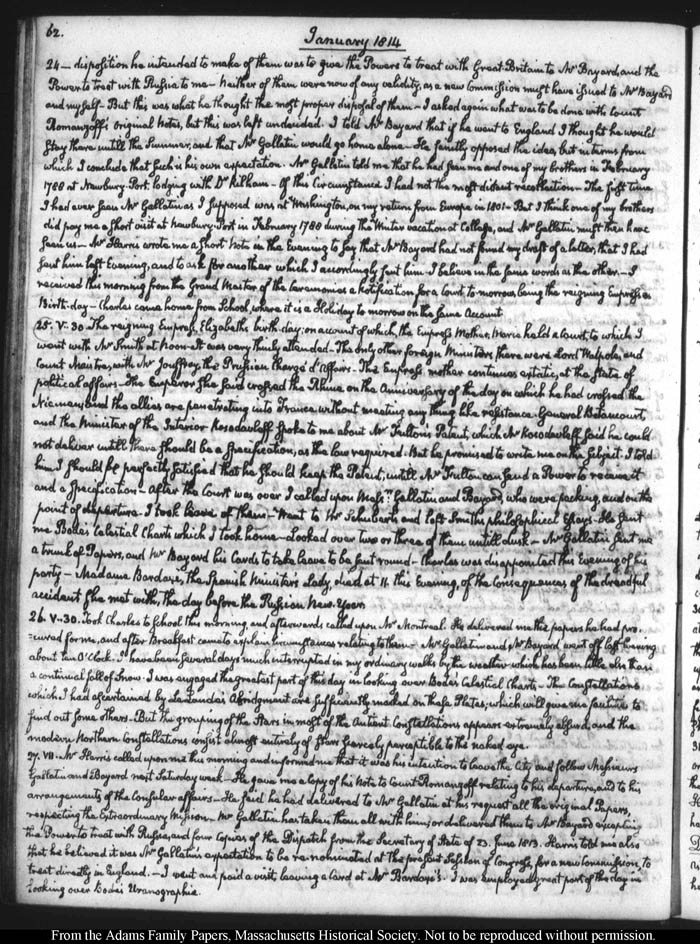 62.
January 1814
24 — disposition he intended to make of them was to give the Powers to treat with Great-Britain to Mr Bayard, and the
Power to treat with Russia to me — Neither of them were now of any validity, as a new Commission must have issued to Mr Bayard
and myself — But this was what he thought the most proper disposal of them — I asked again what was to be done with Count
Romanzoff's original Notes, but this was left undecided. I told Mr Bayard that if he went to England I thought he would
stay there until the Summer, and that Mr Gallatin would go home alone — He faintly opposed the idea, but in terms from
which I conclude that such is his own expectation. Mr Gallatin told me that he had seen me and one of my brothers in February
1788 at Newbury-Port, lodging with Dr Kilham — Of this Circumstance I had not the most distant recollection — The first time
I had ever seen Mr Gallatin as I supposed was at Washington, on my return from Europe in 1801 — But I think one of my brothers
did pay me a short visit at Newbury-Port in February 1788 during the Winter vacation at College, and Mr Gallatin must then have
seen us — Mr Harris wrote me a short Note in the Evening to say that Mr Bayard had not found my draft of a letter, that I had
sent him last Evening, and to ask for another which I accordingly sent him I believe in the same words as the other. — I
received this morning from the Grand Master of the Ceremonies a Notification for a Court to-morrow, being the reigning Empress's
Birth-day — Charles came home from School, where it is a Holiday to morrow on the same Account.
25. V. 30. The reigning Empress, Elizabeth's birth-day; on account of which, the Empress Mother, Maria held a Court, to which I
went with Mr Smith at Noon — It was very thinly attended — The only other foreign Ministers there were Lord Walpole, and
Count Maistre, with Mr Jouffroy, the Prussian Chargé d'Affaires — The Empress mother continues extatic, at the state of
political affairs — The Emperor she said crossed the Rhine on the Anniversary of the day on which he had crossed the
Niemen; and the allies are penetrating into France without meeting any thing like resistance. General Betancourt,
and the Minister of the Interior Kosodavleff spoke to me about Mr Fulton's Patent, which Mr Kosodavleff said he could
not deliver until there should be a specification, as the law required — But he promised to write me on the subject. I told
him I should be perfectly satisfied that he should keep the Patent, untill Mr Fulton can send a Power to receive it
and a Specification — After the Court was over I called upon Messrs Gallatin and Bayard, who were packing, and on the
point of departure — I took leave of them — Went to Mr Schubert's and left Smith's philosophical Essays — He sent
me Bode's Celestial Charts which I took home — Looked over two or three of them untill dusk — Mr Gallatin sent me
a trunk of Papers, and Mr Bayard his Cards to take leave to be sent round — Charles was disappointed this Evening of his
party — Madame Bardaxe, the Spanish Minister's Lady, died at 11. this Evening, of the Consequences of the dreadful
accident she met with, the day before the Russian New-Year.
26. V-30. Took Charles to School this morning, and afterwards called upon Mr Montreal. He delivered me the papers he had pro-
=cured for me, and after Breakfast came to explain circumstances relating to them — Mr Gallatin and Mr Bayard went off last Evening
about ten O'Clock. I have been several days much interrupted in my ordinary walks by the weather which has been little else than
a continual fall of snow. I was engaged the greatest part of this day in looking over Bode's Celestial Charts — The Constellations
which I had ascertained by La Lande's Abridgment are sufficiently marked on these Plates; which will give me facilities to
find out some others — But the grouping of the Stars in most of the Antient Constellations appears extremely absurd, and the
modern Northern Constellations consist almost entirely of Stars scarcely perceptible to the naked eye.
27. VII. Mr Harris called upon me this morning and informed me that it was his intention to leave the City and follow Messieurs
Gallatin and Bayard next Saturday week — He gave me a copy of his Note to Count Romanzoff relating to his departure, and to his
arrangements of the Consular affairs — He said he had delivered to Mr Gallatin at his request all the original Papers,
respecting the Extraordinary Mission. Mr Gallatin has taken them all with him; or delivered them to Mr Bayard excepting
the Power to treat with Russia, and four Copies of the Dispatch from the Secretary of State of 23. June 1813. Harris told me also
that he believed it was Mr Gallatin's expectation to be re-nominated at the present Session of Congress, for a new Commission, to
treat directly in England. — I went and paid a visit, leaving a Card at Mr Bardaxe's. I was employed great part of the day in
looking over Bode's Uranographie.
From the Adams Family Papers, Massachusetts Historical Society. Not to be reproduced without permission.